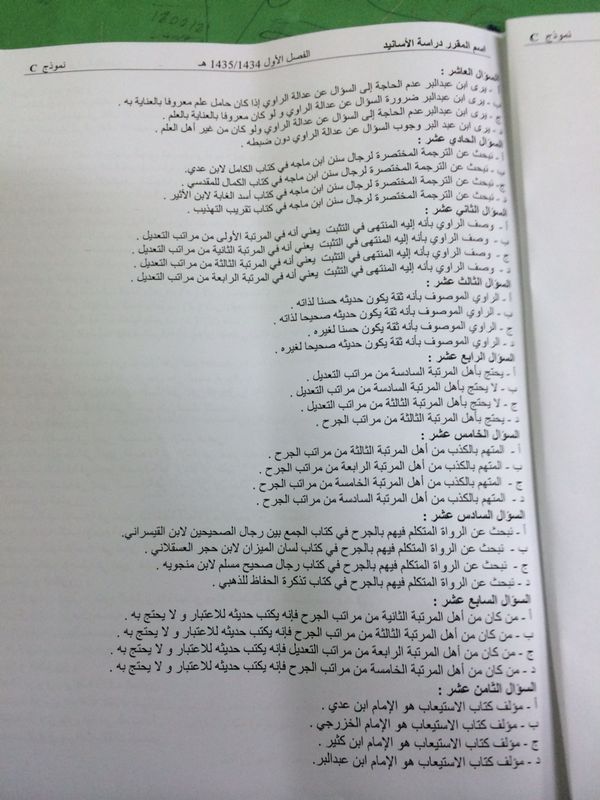 نموذج C
اسم المقرر دراسة الأسانيد
الفصل الأول 1435/1434 هـ
نموذج C
السؤال العاشر :
أ - يرى ابن عبدالبر عدم الحاجة إلى السؤال عن عدالة الراوي إذا كان حامل علم معروفا بالعناية به .
ب - يرى ابن عبدالبر ضرورة السؤال عن عدالة الراوي و لو كان معروفا بالعناية بالعلم .
ج - يرى ابن عبدالبر عدم الحاجة إلى السؤال عن عدالة الراوي ولو كان من غير أهل العلم .
د - يرى ابن عبد البر وجوب السؤال عن عدالة الراوي دون ضبطه .
السؤال الحادي عشر :
أ - نبحث عن الترجمة المختصرة لرجال سنن ابن ماجه في كتاب الكامل لابن عدي.
ب - نبحث عن الترجمة المختصرة لرجال سنن ابن ماجه في كتاب الكمال للمقدسي .
ج - نبحث عن الترجمة المختصرة لرجال سنن ابن ماجه في كتاب أسد الغابة لابن الأثير .
د - نبحث عن الترجمة المختصرة لرجال سنن ابن ماجه في كتاب تقريب التهذيب .
السؤال الثاني عشر :
أ - وصف الراوي بأنه إليه المنتهى في التثبت يعني أنه في المرتبة الأولى من مراتب التعديل .
ب - وصف الراوي بأنه إليه المنتهى في التثبت يعني أنه في المرتبة الثانية من مراتب التعديل .
ج - وصف الراوي بأنه إليه المنتهى في التثبت يعني أنه في المرتبة الثالثة من مراتب التعديل .
د - وصف الراوي بأنه إليه المنتهى في التثبت يعني أنه في المرتبة الرابعة من مراتب التعديل .
السؤال الثالث عشر :
أ - الراوي الموصوف بأنه ثقة يكون حديثه حسنا لذاته .
ب - الراوي الموصوف بأنه ثقة يكون حديثه صحيحا لذاته .
ج - الراوي الموصوف بأنه ثقة يكون حسنا لغيره .
د - الراوي الموصوف بأنه ثقة يكون حديثه صحيحا لغيره .
السؤال الرابع عشر :
أ - يحتج بأهل المرتبة السادسة من مراتب التعديل .
ب - لا يحتج بأهل المرتبة السادسة من مراتب التعديل .
ج - لا يحتج بأهل المرتبة الثالثة من مراتب التعديل .
د - يحتج بأهل المرتبة الثالثة من مراتب الجرح .
السؤال الخامس عشر :
أ - المتهم بالكذب من أهل المرتبة الثالثة من مراتب الجرح .
ب - المتهم بالكذب من أهل المرتبة الرابعة من مراتب الجرح .
ج - المتهم بالكذب من أهل المرتبة الخامسة من مراتب الجرح .
د - المتهم بالكذب من أهل المرتبة السادسة من مراتب الجرح .
السؤال السادس عشر :
أ - نبحث عن الرواة المتكلم فيهم بالجرح في كتاب الجمع بين رجال الصحيحين لابن القيسراني.
ب - نبحث عن الرواة المتكلم فيهم بالجرح في كتاب لسان الميزان لابن حجر العسقلاني .
ج - نبحث عن الرواة المتكلم فيهم بالجرح في كتاب رجال صحيح مسلم لابن منجويه .
د - نبحث عن الرواة المتكلم فيهم بالجرح في كتاب تذكرة الحفاظ للذهبي .
السؤال السابع عشر :
أ - من كان من أهل المرتبة الثانية من مراتب الجرح فإنه يكتب حديثه للاعتبار و لا يحتج به .
ب - من كان من أهل المرتبة الثالثة من مراتب الجرح فإنه يكتب حديثه للاعتبار و لا يحتج به .
ج - من كان من أهل المرتبة الرابعة من مراتب التعديل فإنه يكتب حديثه للاعتبار و لا يحتج به .
د - من كان من أهل المرتبة الخامسة من مراتب الجرح فإنه يكتب حديثه للاعتبار و لا يحتج به .
السؤال الثامن عشر :
أ - مؤلف كتاب الاستيعاب هو الإمام ابن عدي .
ب - مؤلف كتاب الاستيعاب هو الإمام الخزرجي .
ج - مؤلف كتاب الاستيعاب هو الإمام ابن كثير .
د - مؤلف كتاب الاستيعاب هو الإمام ابن عبدالبر.